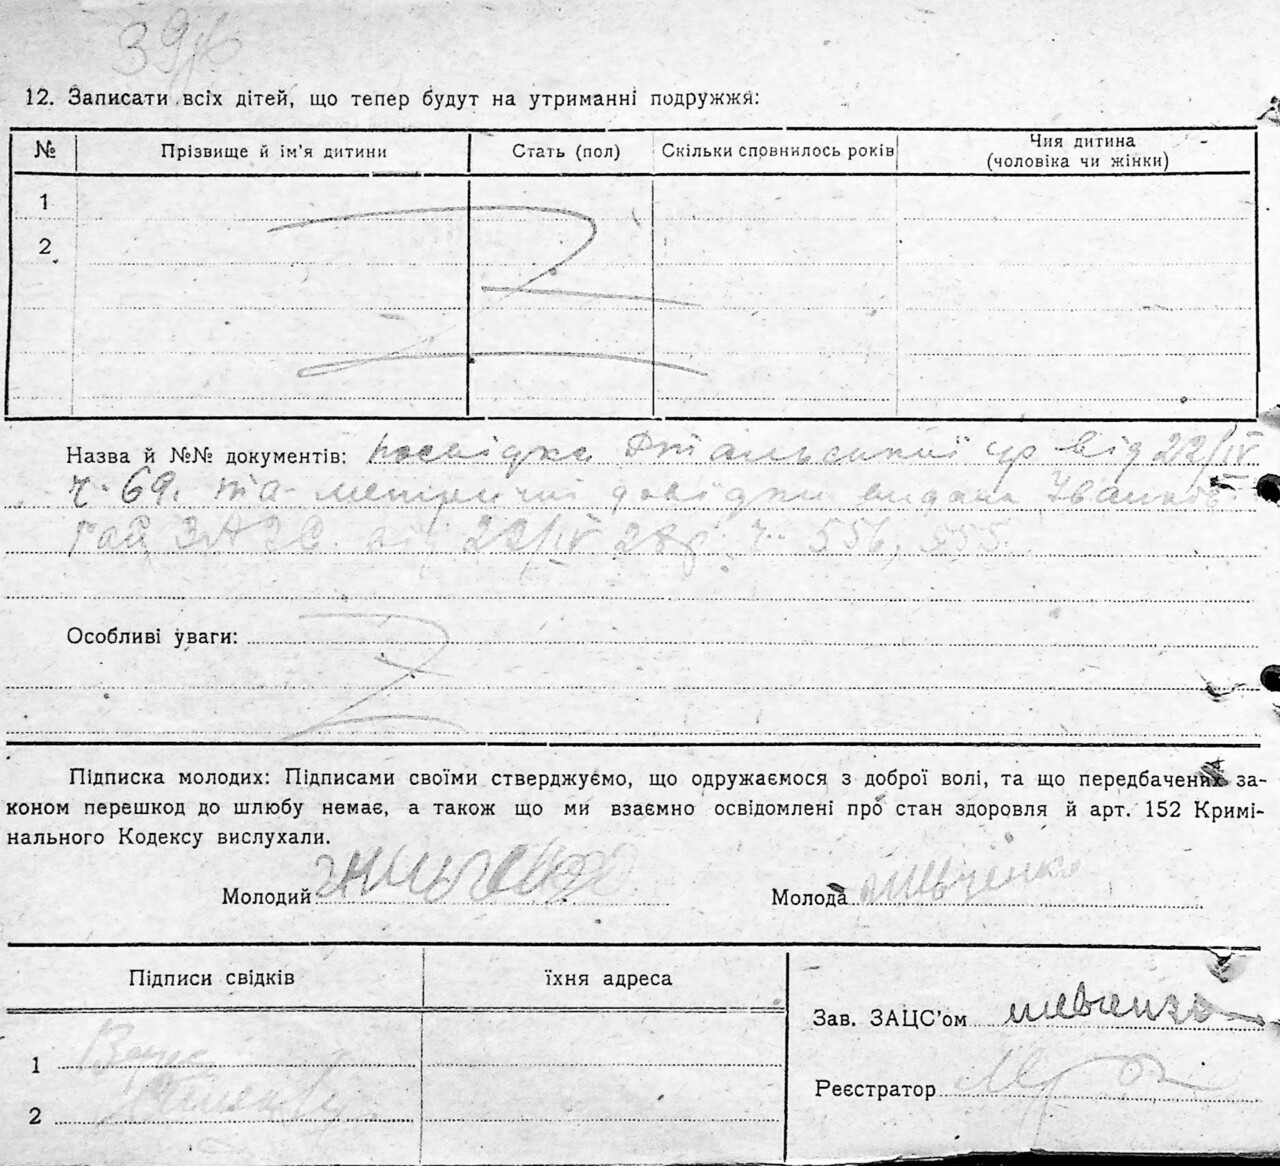 12. Записати всіх дітей, що тепер будут на утриманні подружжя:
№ Прізвище й ім'я дитини Стать (пол) Скільки сповнилось років Чия дитина (чоловіка чи жінки)
1
2
Назва й №№ документів: посвідка від 22/IV
ч. 69. та метричні довідки видані
ЗАЗС. від 22/IV 28р. ч. 556, 555.
Особливі уваги:
Підписка молодих: Підписами своїми стверджуємо, що одружаємося з доброї волі, та що передбачених за-
коном перешкод до шлюбу немає, а також що ми взаємно освідомлені про стан здоровля й арт. 152 Кримі-
нального Кодексу вислухали.
Молодий Молода Шевченко
Підписи свідків їхня адреса
Зав. ЗАЦС'ом Шевченко
1
Реєстратор
2